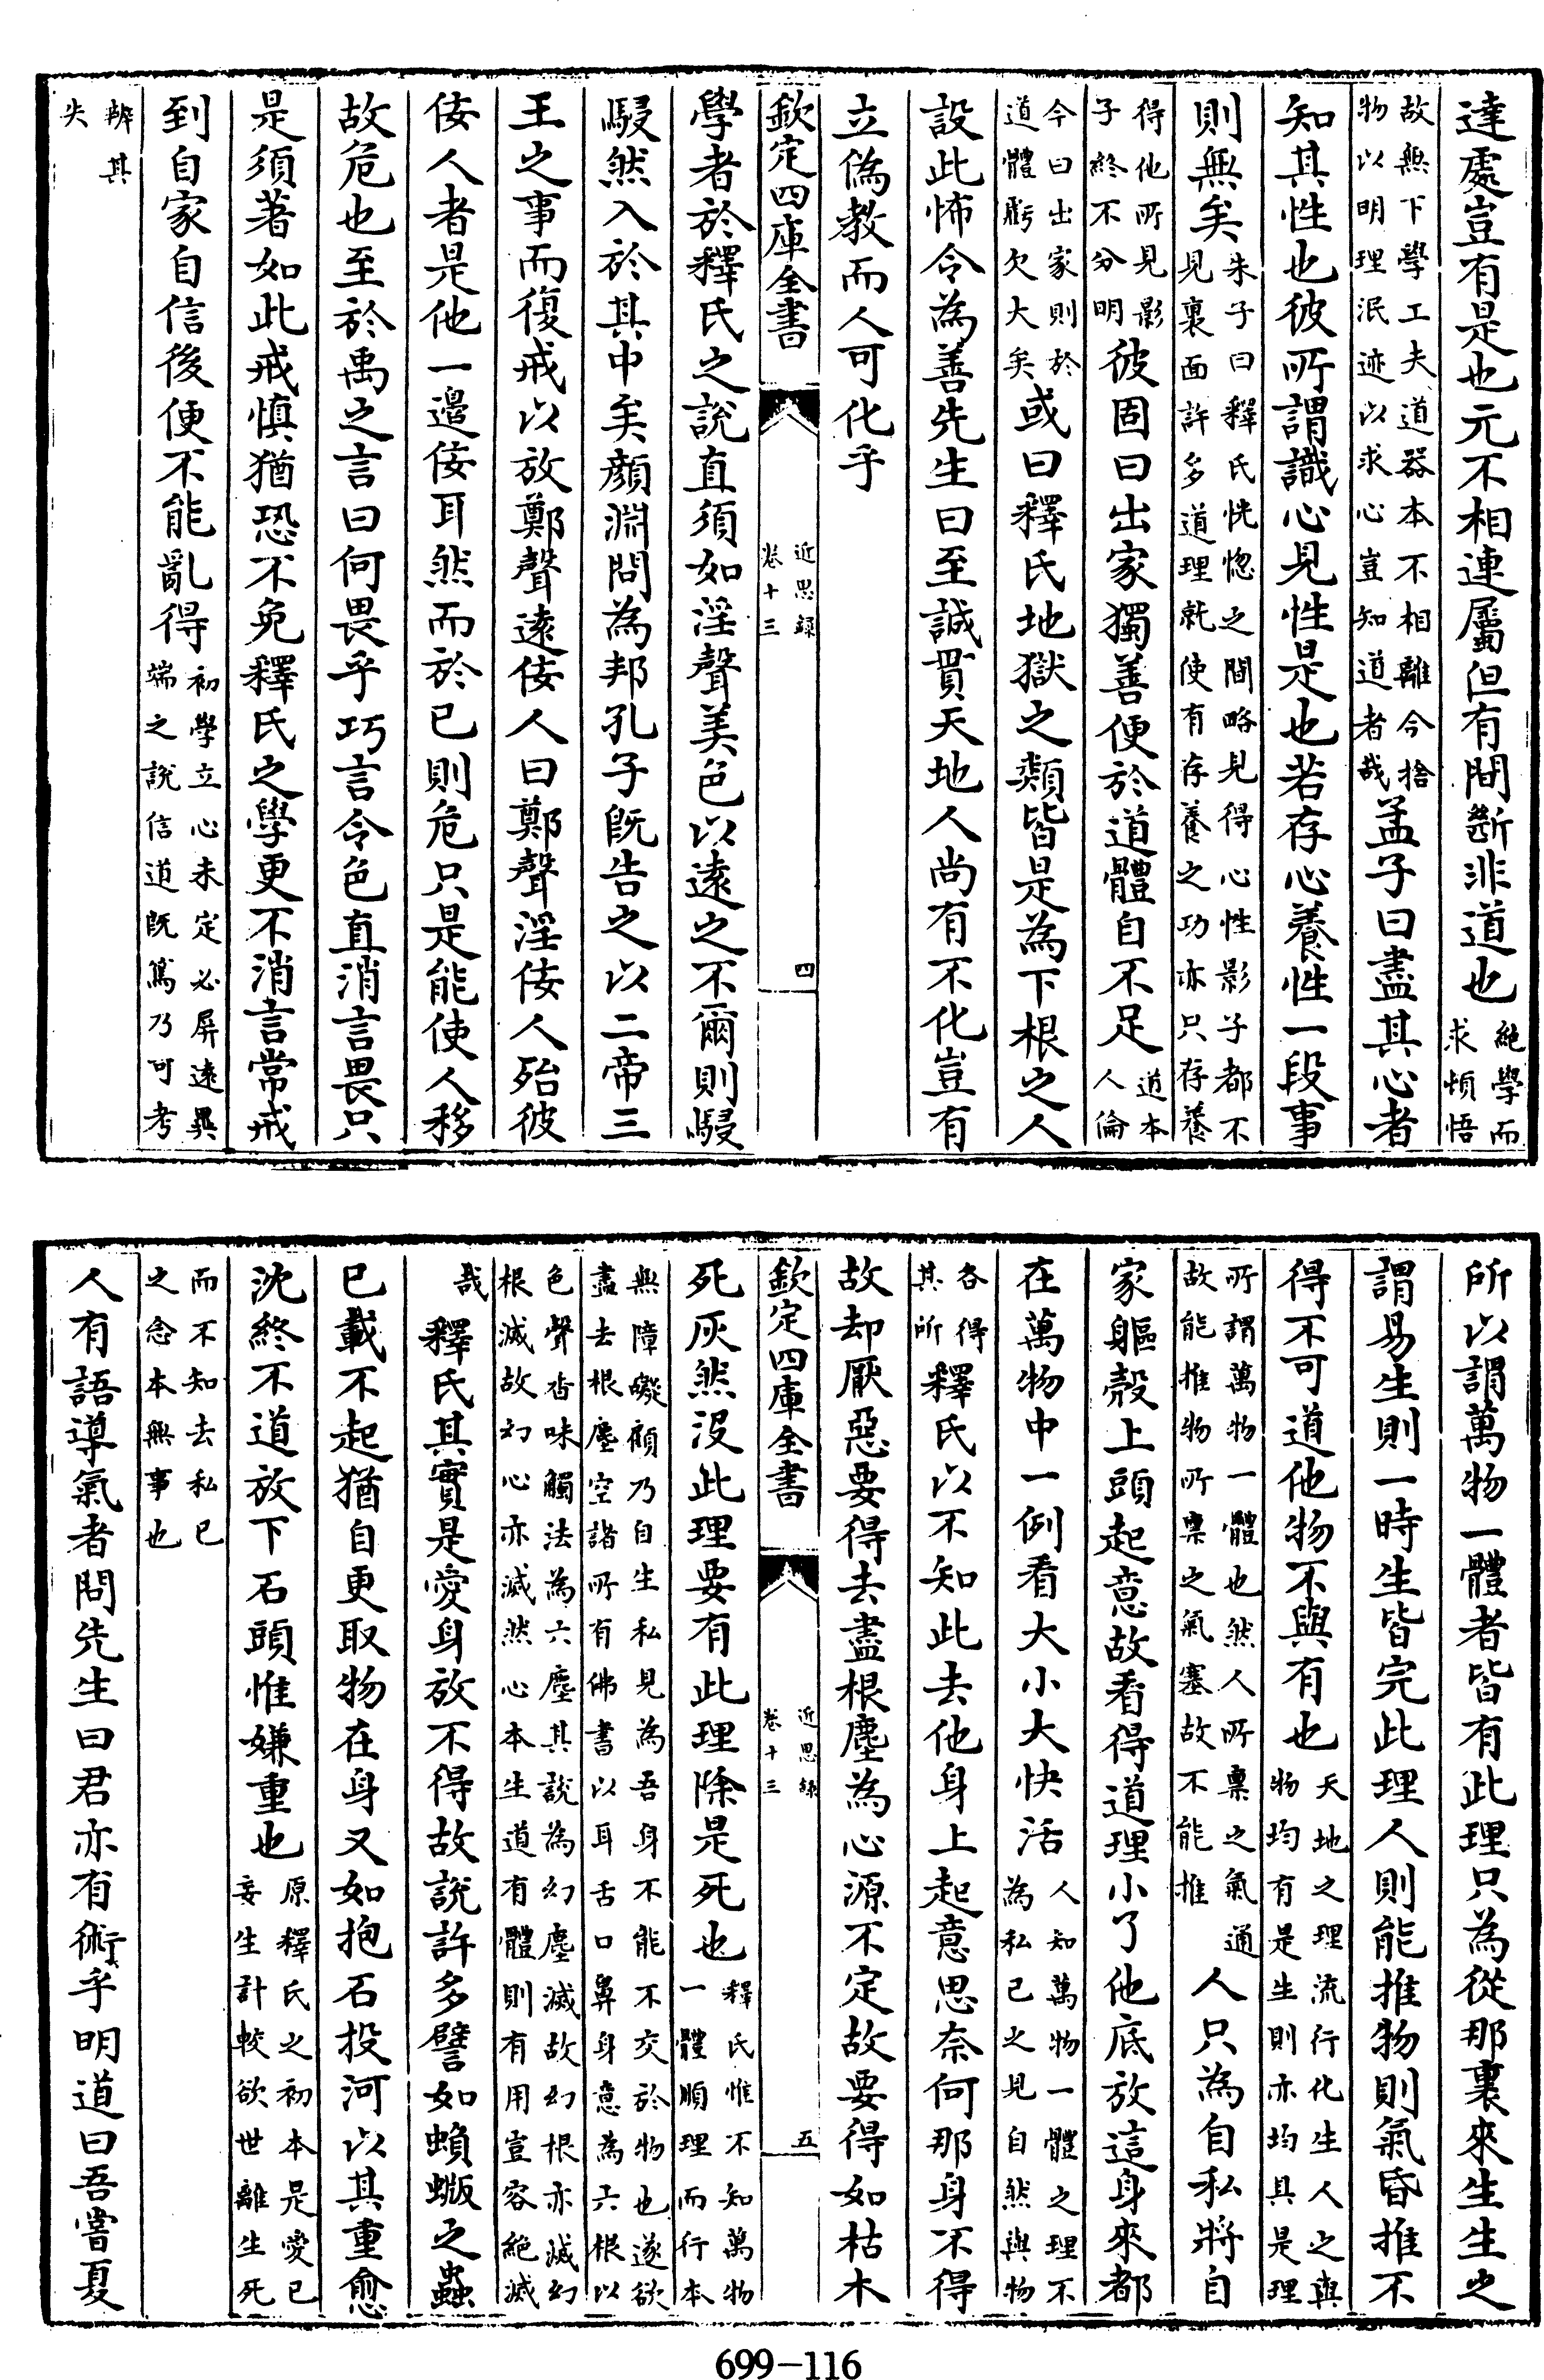 達處豈有是也元不相連屬但有間斷非道也絶學而求頓悟
故無下學工夫道器本不相離今捨物以明理泯迹以求心豈知道者哉孟子曰盡其心者
知其性也彼所謂識心見性是也若存心養性一段事
則無矣朱子曰釋氏恍惚之間略見得心性影子都不見裏面許多道理就使有存養之功亦只存養
得他所見影子終不分明彼固曰出家獨善便於道體自不足道本人倫
今曰出家則於道體虧欠大矣或曰釋氏地獄之類皆是為下根之人
設此怖令為善先生曰至誠貫天地人尚有不化豈有
立偽教而人可化乎
欽定四庫全書 近思録卷十三 四
學者於釋氏之說直須如淫聲美色以遠之不爾則駸
駸然入於其中矣顏淵問為邦孔子旣告之以二帝三
王之事而復戒以放鄭聲遠佞人曰鄭聲淫佞人殆彼
佞人者是他一邊佞耳然而於已則危只是能使人移
故危也至於禹之言曰何畏乎巧言令色直消言畏只
是須著如此戒慎猶恐不免釋氏之學更不消言常戒
到自家自信後便不能亂得初學立心未定必屏遠異端之說信道旣篤乃可考
辨其失
所以謂萬物一體者皆有此理只為從那裏來生生之
謂易生則一時生皆完此理人則能推物則氣昏推不
得不可道他物不與有也天地之理流行化生人之與物均有是生則亦均具是理
所謂萬物一體也然人所稟之氣通故能推物所稟之氣塞故不能推人只為自私將自
家軀殻上頭起意故看得道理小了他底放這身來都
在萬物中一例看大小大快活人知萬物一體之理不為私已之見自然與物
各得其所釋氏以不知此去他身上起意思奈何那身不得
故却厭惡要得去盡根塵為心源不定故要得如枯木
欽定四庫全書 近思録卷十三 五
死灰然沒此理要有此理除是死也釋氏惟不知萬物一體順理而行本
無障礙顧乃自生私見為吾身不能不交於物也遂欲盡去根塵空諸所有佛書以耳舌口鼻身意為六根以
色聲香味觸法為六塵其說為幻塵滅故幻根亦滅幻根滅故幻心亦滅然心本生道有體則有用豈容絶滅
哉釋氏其實是愛身放不得故說許多譬如蝜蝂之蟲
已載不起猶自更取物在身又如抱石投河以其重愈
沈終不道放下石頭惟嫌重也原釋氏之初本是愛已妄生計較欲世離生死
而不知去私已之念本無事也
人有語導氣者問先生曰君亦有術乎明道曰吾嘗夏
699-116